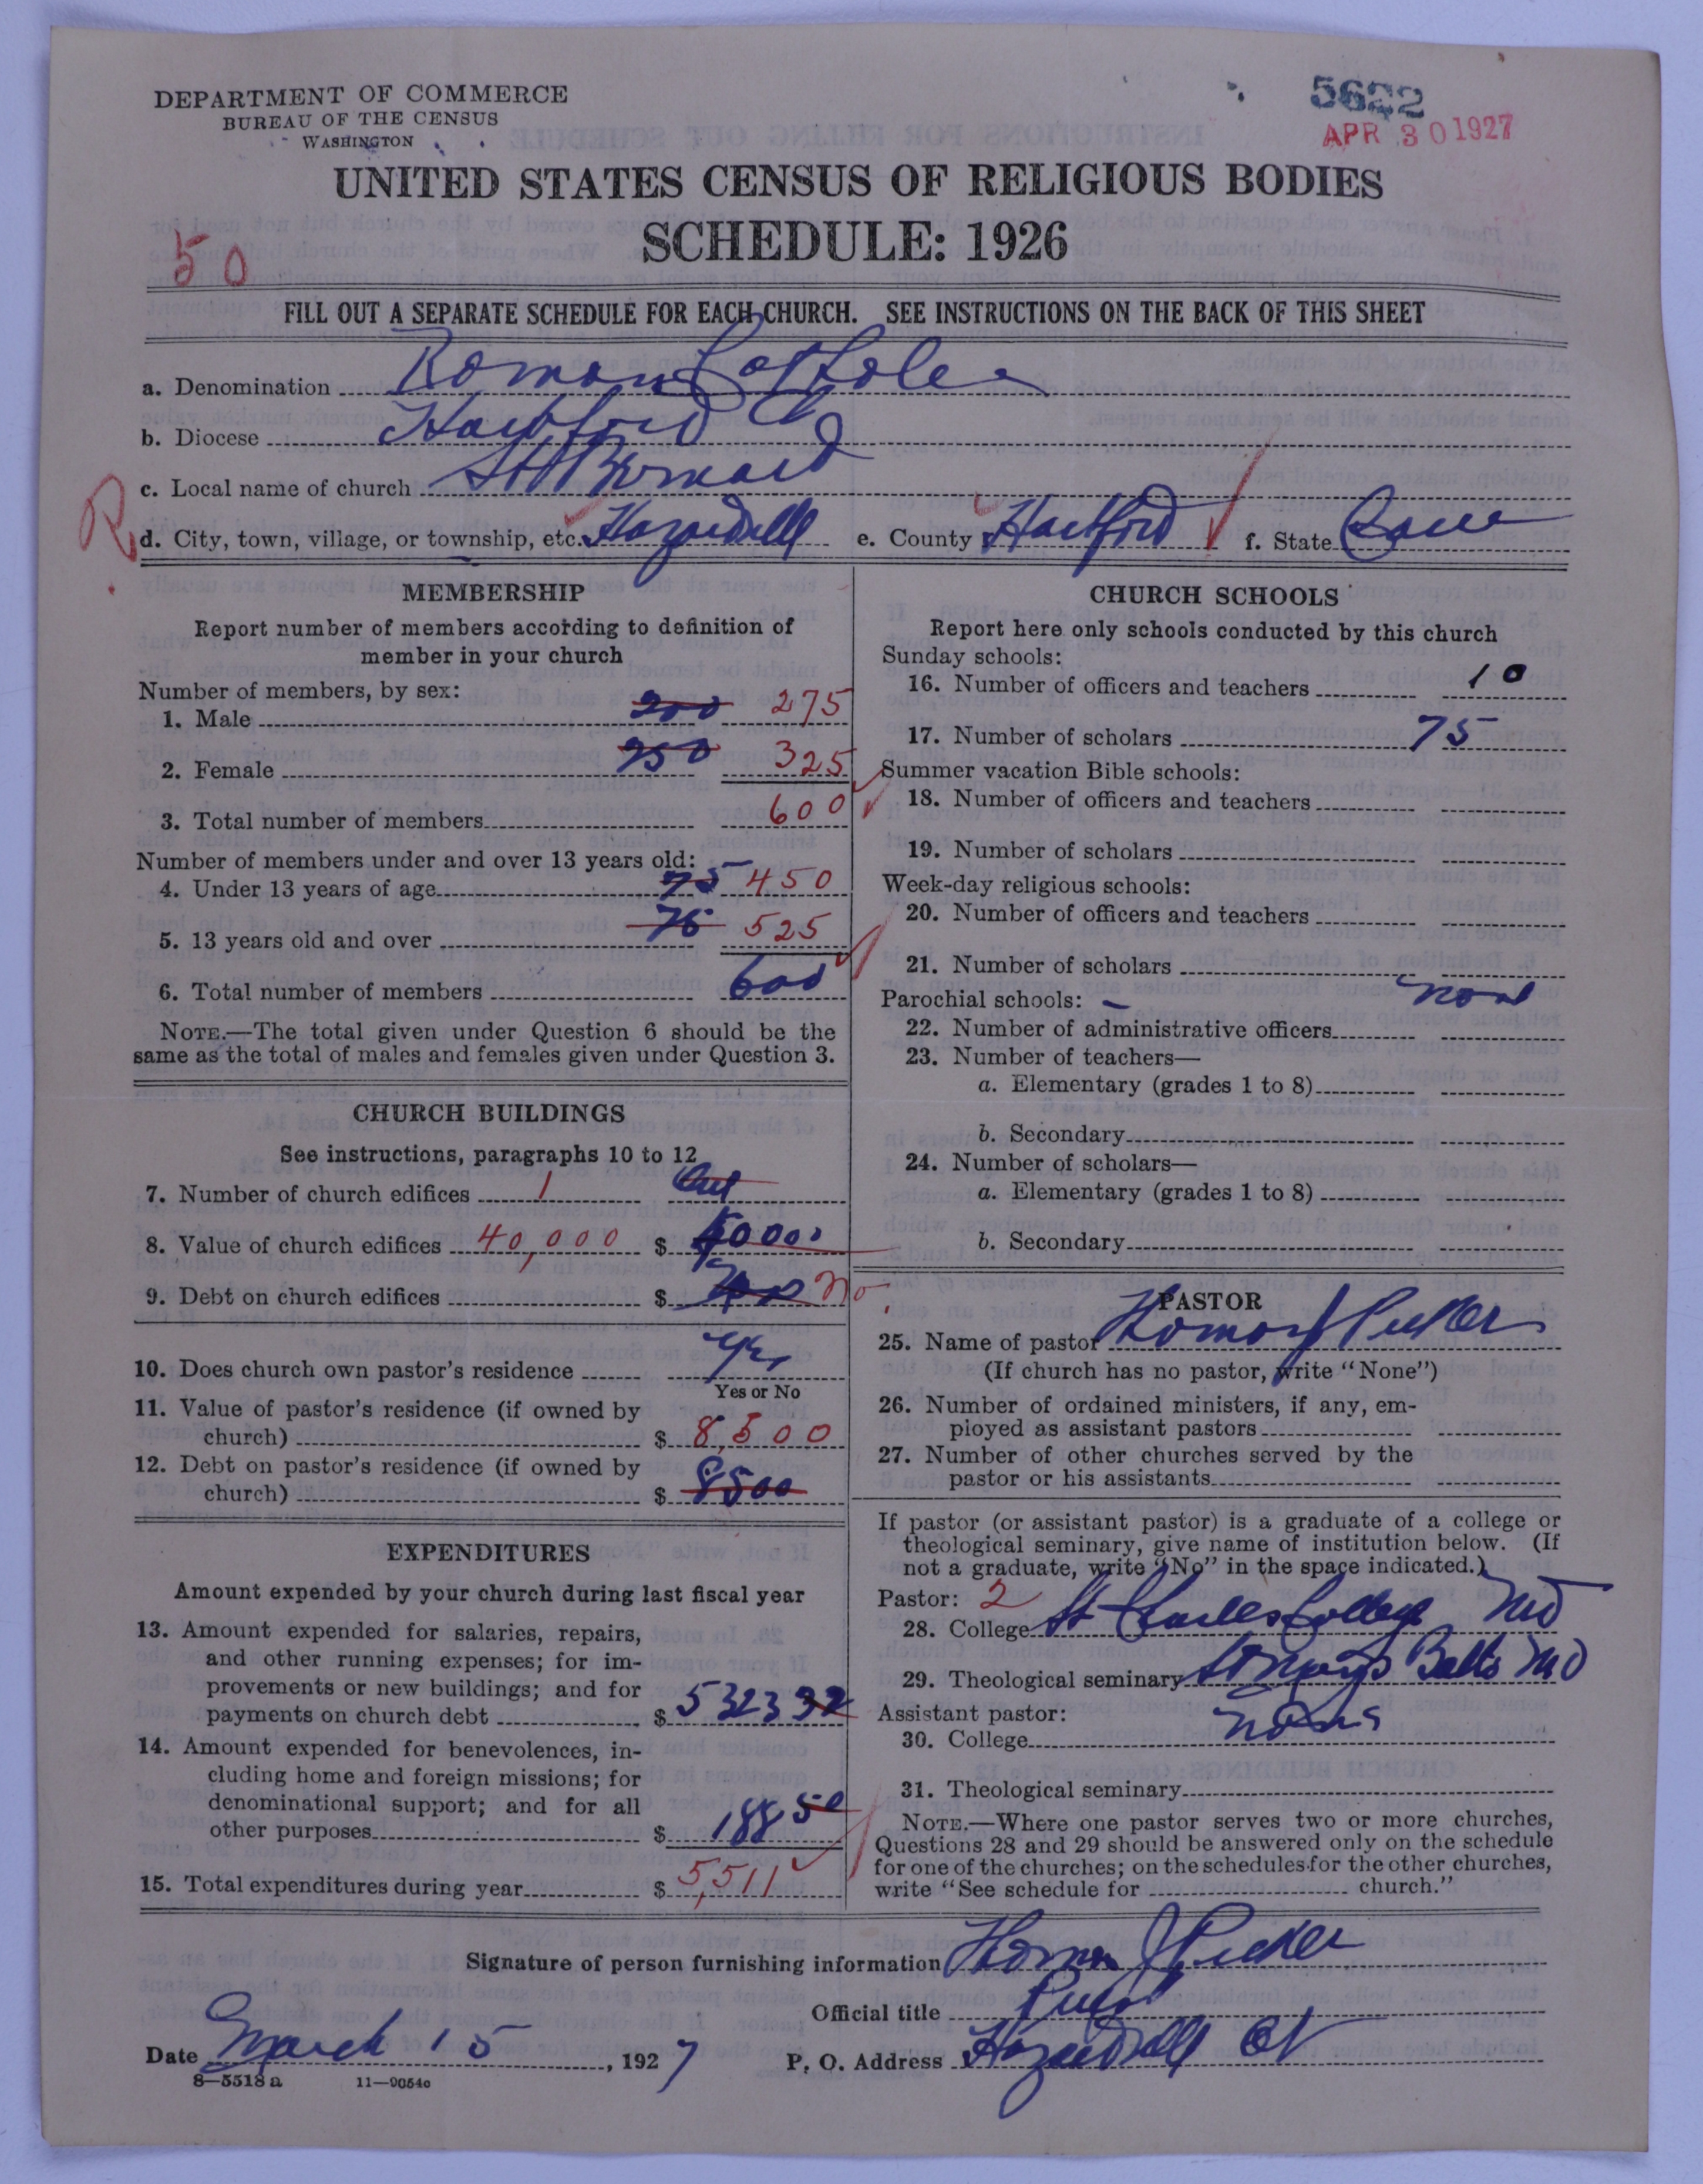 DEPARTMENT OF COMMERCE
BUREAU OF THE CENSUS
WASHINGTON
5622
APR 30 1927
UNITED STATES CENSUS OF RELIGIOUS BODIES
SCHEDULE: 1926
50
FILL OUT A SEPARATE SCHEDULE FOR EACH CHURCH. SEE INSTRUCTIONS ON THE BACK OF THIS SHEET
a. Denomination Roman Catholic
b. Diocese Hartford
c. Local name of church St Bernard
R d. City, town, village, or township, etc. Hazardville e. County Hartford f. State Conn
MEMBERSHIP
Report number of members according to definition of
member in your church
Number of members, by sex:
1. Male 200 275
2. Female 250 325
3. Total number of members 600
Number of members under and over 13 years old:
4. Under 13 years of age 75 450
5. 13 years old and over 75 525
6. Total number of members 600
NOTE.—The total given under Question 6 should be the
same as the total of males and females given under Question 3.
CHURCH BUILDINGS
See instructions, paragraphs 10 to 12
7. Number of church edifices 1
8. Value of church edifices 40,000 $ 40000
9. Debt on church edifices $ no
10. Does church own pastor's residence Yes
Yes or No
11. Value of pastor's residence (if owned by
church) $ 8,500
12. Debt on pastor's residence (if owned by
church) $ 8500
EXPENDITURES
Amount expended by your church during last fiscal year
13. Amount expended for salaries, repairs,
and other running expenses; for im-
provements or new buildings; and for
payments on church debt $ 5323 32
14. Amount expended for benevolences, in-
cluding home and foreign missions; for
denominational support; and for all
other purposes $ 188 50
15. Total expenditures during year $ 5,511
CHURCH SCHOOLS
Report here only schools conducted by this church
Sunday schools:
16. Number of officers and teachers 10
17. Number of scholars 75
Summer vacation Bible schools:
18. Number of officers and teachers
19. Number of scholars
Week-day religious schools:
20. Number of officers and teachers
21. Number of scholars
Parochial schools: – none
22. Number of administrative officers
23. Number of teachers—
a. Elementary (grades 1 to 8)
b. Secondary
24. Number of scholars—
a. Elementary (grades 1 to 8)
b. Secondary
PASTOR
25. Name of pastor Thomas J
(If church has no pastor, write "None")
26. Number of ordained ministers, if any, em-
ployed as assistant pastors
27. Number of other churches served by the
pastor or his assistants
If pastor (or assistant pastor) is a graduate of a college or
theological seminary, give name of institution below. (If
not a graduate, write "No" in the space indicated.)
Pastor: 2
28. College St Charles College Md
29. Theological seminary St Marys Balto Md
Assistant pastor:
30. College none
31. Theological seminary
NOTE.—Where one pastor serves two or more churches,
Questions 28 and 29 should be answered only on the schedule
for one of the churches; on the schedules for the other churches,
write "See schedule for church."
Signature of person furnishing information Thomas J
Official title
Date March 15, 1927 P. O. Address Hazardville Ct
8—5518 a 11—9054c